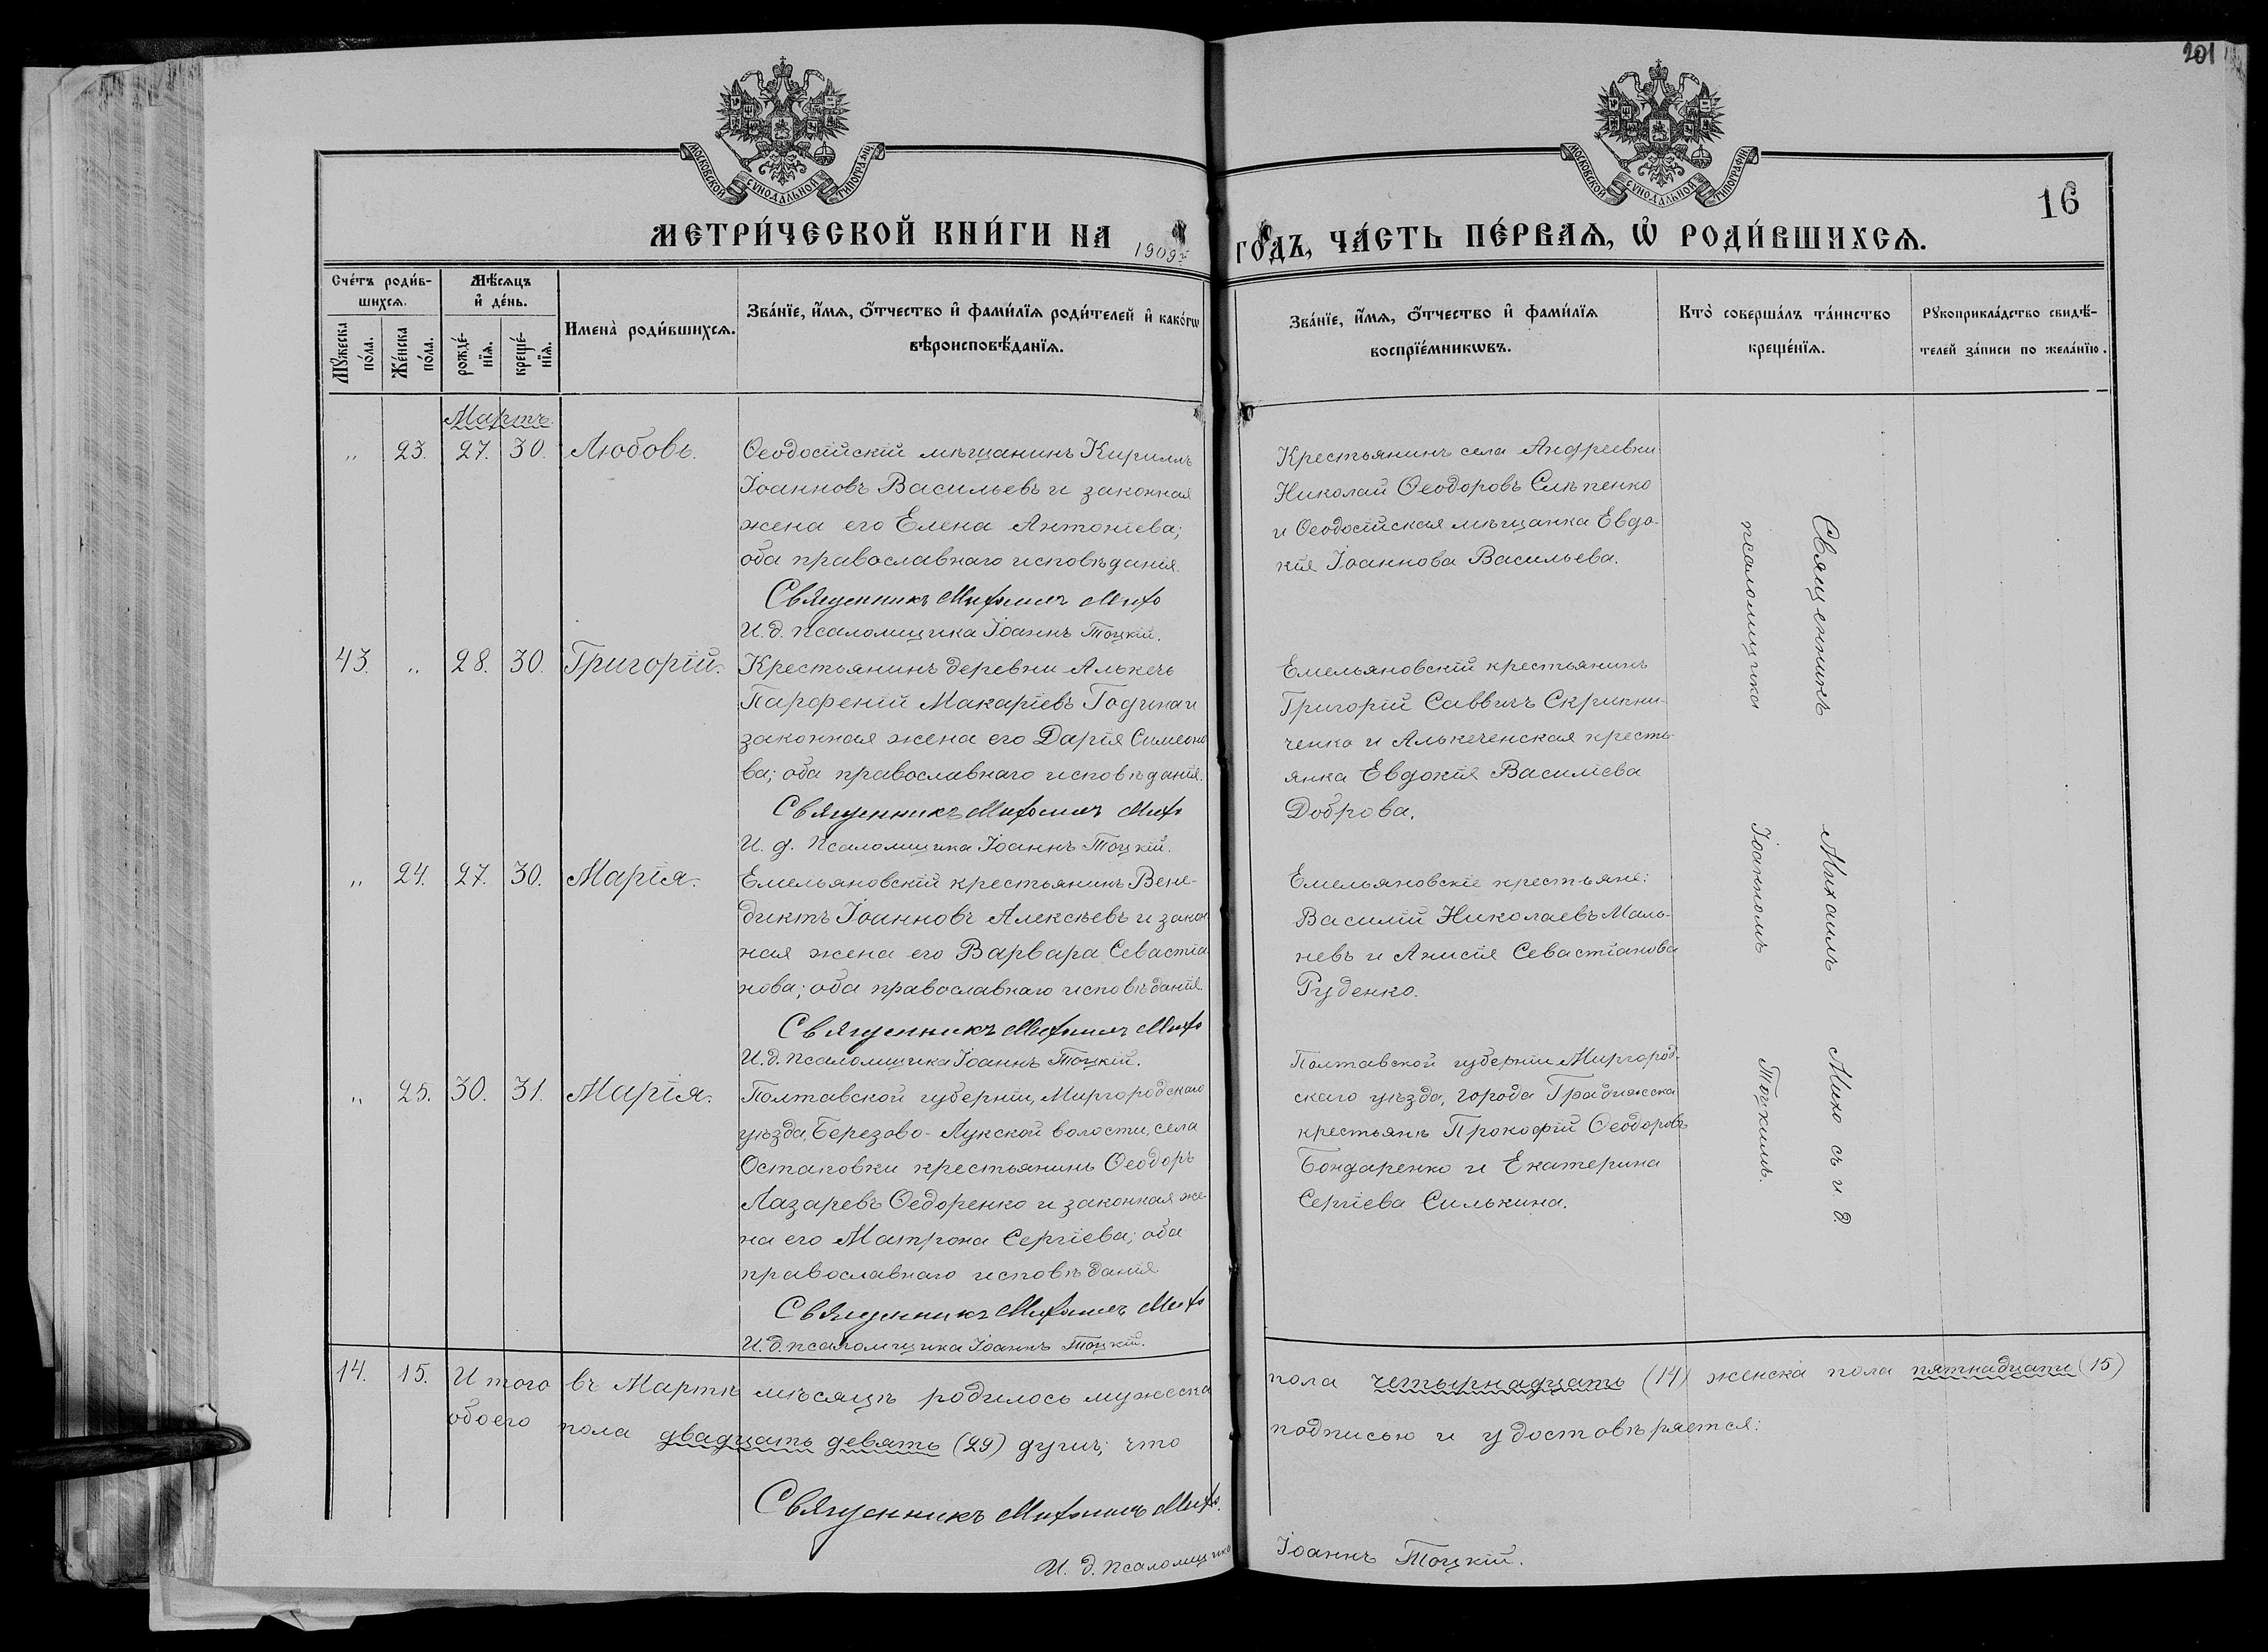 201
МОСКОВСКОЙ СУНОДАЛЬНОЙ ТИПОГРАФІИ
МОСКОВСКОЙ СУНОДАЛЬНОЙ ТИПОГРАФІИ
16
МЕТРИ́ЧЕСКОЙ КНИ́ГИ НА 1909й ГО́ДЪ, ЧА́СТЬ ПЕ́РВАѦ, Ѡ҆ РОДИ́ВШИХСѦ.
Сче́тъ роди́в-
шихсѧ.
Мѣ́сѧцъ
и҆ де́нь.
Мꙋ́жеска
по́ла.
Же́нска
по́ла.
рожде́-
нїѧ.
креще́-
нїѧ.
Имена̀ роди́вшихсѧ.
Зва́нїе, и҆́мѧ, ѻ҆́тчество и҆ фами́лїѧ роди́телей и҆ како́гѡ
вѣроисповѣ́данїѧ.
Зва́нїе, и҆́мѧ, ѻ҆́тчество и҆ фами́лїѧ
воспрїе́мникѡвъ.
Кто̀ соверша́лъ та́инство
креще́нїѧ.
Рꙋкоприкла́дство свидѣ́-
телей за́писи по жела́нїю.
Мартъ.
„ 23. 27. 30. Любовь.
Ѳеодосійскій мѣщанинъ Кириллъ
Іоанновъ Васильевъ и законная
жена его Елена Антоніева;
оба православнаго исповѣданія.
Священникъ Михаилъ Михо
И. д. псаломщика Іоаннъ Тоцкій.
Крестьянинъ села Андреевки
Николай Ѳеодоровъ Слѣпенко
и Ѳеодосійская мѣщанка Евдо-
кія Іоаннова Васильева.
43. „ 28. 30. Григорій.
Крестьянинъ деревни Алькечь
Парфеній Макаріевъ Година и
законная жена его Дарія Симеоно
ва; оба православнаго исповѣданія.
Священникъ Михаилъ Михо
И. д. псаломщика Іоаннъ Тоцкій.
Емельяновскій крестьянинъ
Григорій Саввичъ Скрипни-
ченко и Алькеченская кресть-
янка Евдокія Василіева
Доброва.
„ 24. 27. 30. Марія.
Емельяновскій крестьянинъ Вене-
диктъ Іоанновъ Алексѣевъ и закон
ная жена его Варвара Севастіа
нова; оба православнаго исповѣданія.
Священникъ Михаилъ Михо
И. д. псаломщика Іоаннъ Тоцкій.
Емельяновскіе крестьяне:
Василій Николаевъ Маль-
невъ и Анисія Севастіанова
Руденко.
„ 25. 30. 31. Марія.
Полтавской губерніи, Миргородскаго
уѣзда, Березово-Лукской волости, села
Остаповки крестьянинъ Ѳеодоръ
Лазаревъ Ѳедоренко и законная же-
на его Матрона Сергіева; оба
православнаго исповѣданія
Священникъ Михаилъ Михо
И. д. псаломщика Іоаннъ Тоцкій.
Полтавской губерніи Миргород-
скаго уѣзда, города Градижска
крестьянѣ Прокофій Ѳеодоровъ
Бондаренко и Екатерина
Сергіева Силькина.
Священникъ Михаилъ Михо съ и. д.
псаломщика Іоанномъ Тоцкимъ.
14. 15. Итого въ Мартѣ мѣсяцѣ родилось мужеска пола четырнадцать (14) женска пола пятнадцать (15)
обоего пола двадцать девять (29) душъ; что подписью и удостовѣряется:
Священникъ Михаилъ Михо.
И. д. псаломщика Іоаннъ Тоцкій.